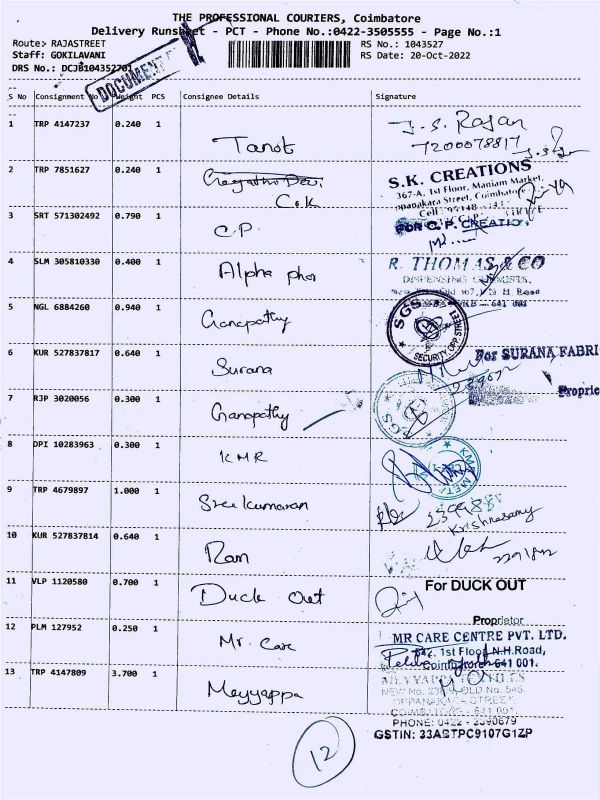 THE PROFESSIONAL COURIERS, Coimbatore
Delivery Runsheet - PCT - Phone No.:0422-3505555 - Page No.:1
Route:- RAJASTREET
Staff: GOKILAVANI
DRS No.: DCJB104352701
RS No.: 1043527
RS Date: 20-Oct-2022
DOCUMENT
S No Consignment No Weight PCS Consignee Details Signature
1 TRP 4147237 0.240 1 Tanot J. S. Rajan
7200078817
2 TRP 7851627 0.240 1 C.S.K S.K. CREATIONS
367-A, 1st Floor, Maniam Market,
Street, Coimbatore
3 SRT 571302492 0.790 1 C.P. FOR C.P. CREATIO
4 SLM 305810330 0.400 1 Alpha phar R. THOMAS & CO
DISPENSING CHEMISTS,
5 NGL 6884260 0.940 1 Ganapathy SGS
SECURITY OPP. STREET
6 KUR 527837817 0.640 1 Surana For SURANA FABRI
Proprie
7 RJP 3020056 0.300 1 Ganapathy SGS
8 DPI 10283963 0.300 1 KMR
9 TRP 4679897 1.000 1 Sree kumaran
Krishnasamy
10 KUR 527837814 0.640 1 Ram
11 VLP 1120580 0.700 1 Duck out For DUCK OUT
Proprietor
12 PLM 127952 0.250 1 Mr. Care MR CARE CENTRE PVT. LTD.
1st Floor N.H.Road,
Coimbatore 641 001.
13 TRP 4147809 3.700 1 Meyyappa MEYYAPPA TEXTILES
OLD No. 545
OPPANAKARA STREET
COIMBATORE - 641 001.
PHONE: 0422 - 2390679
GSTIN: 33ABTPC9107G1ZP
12